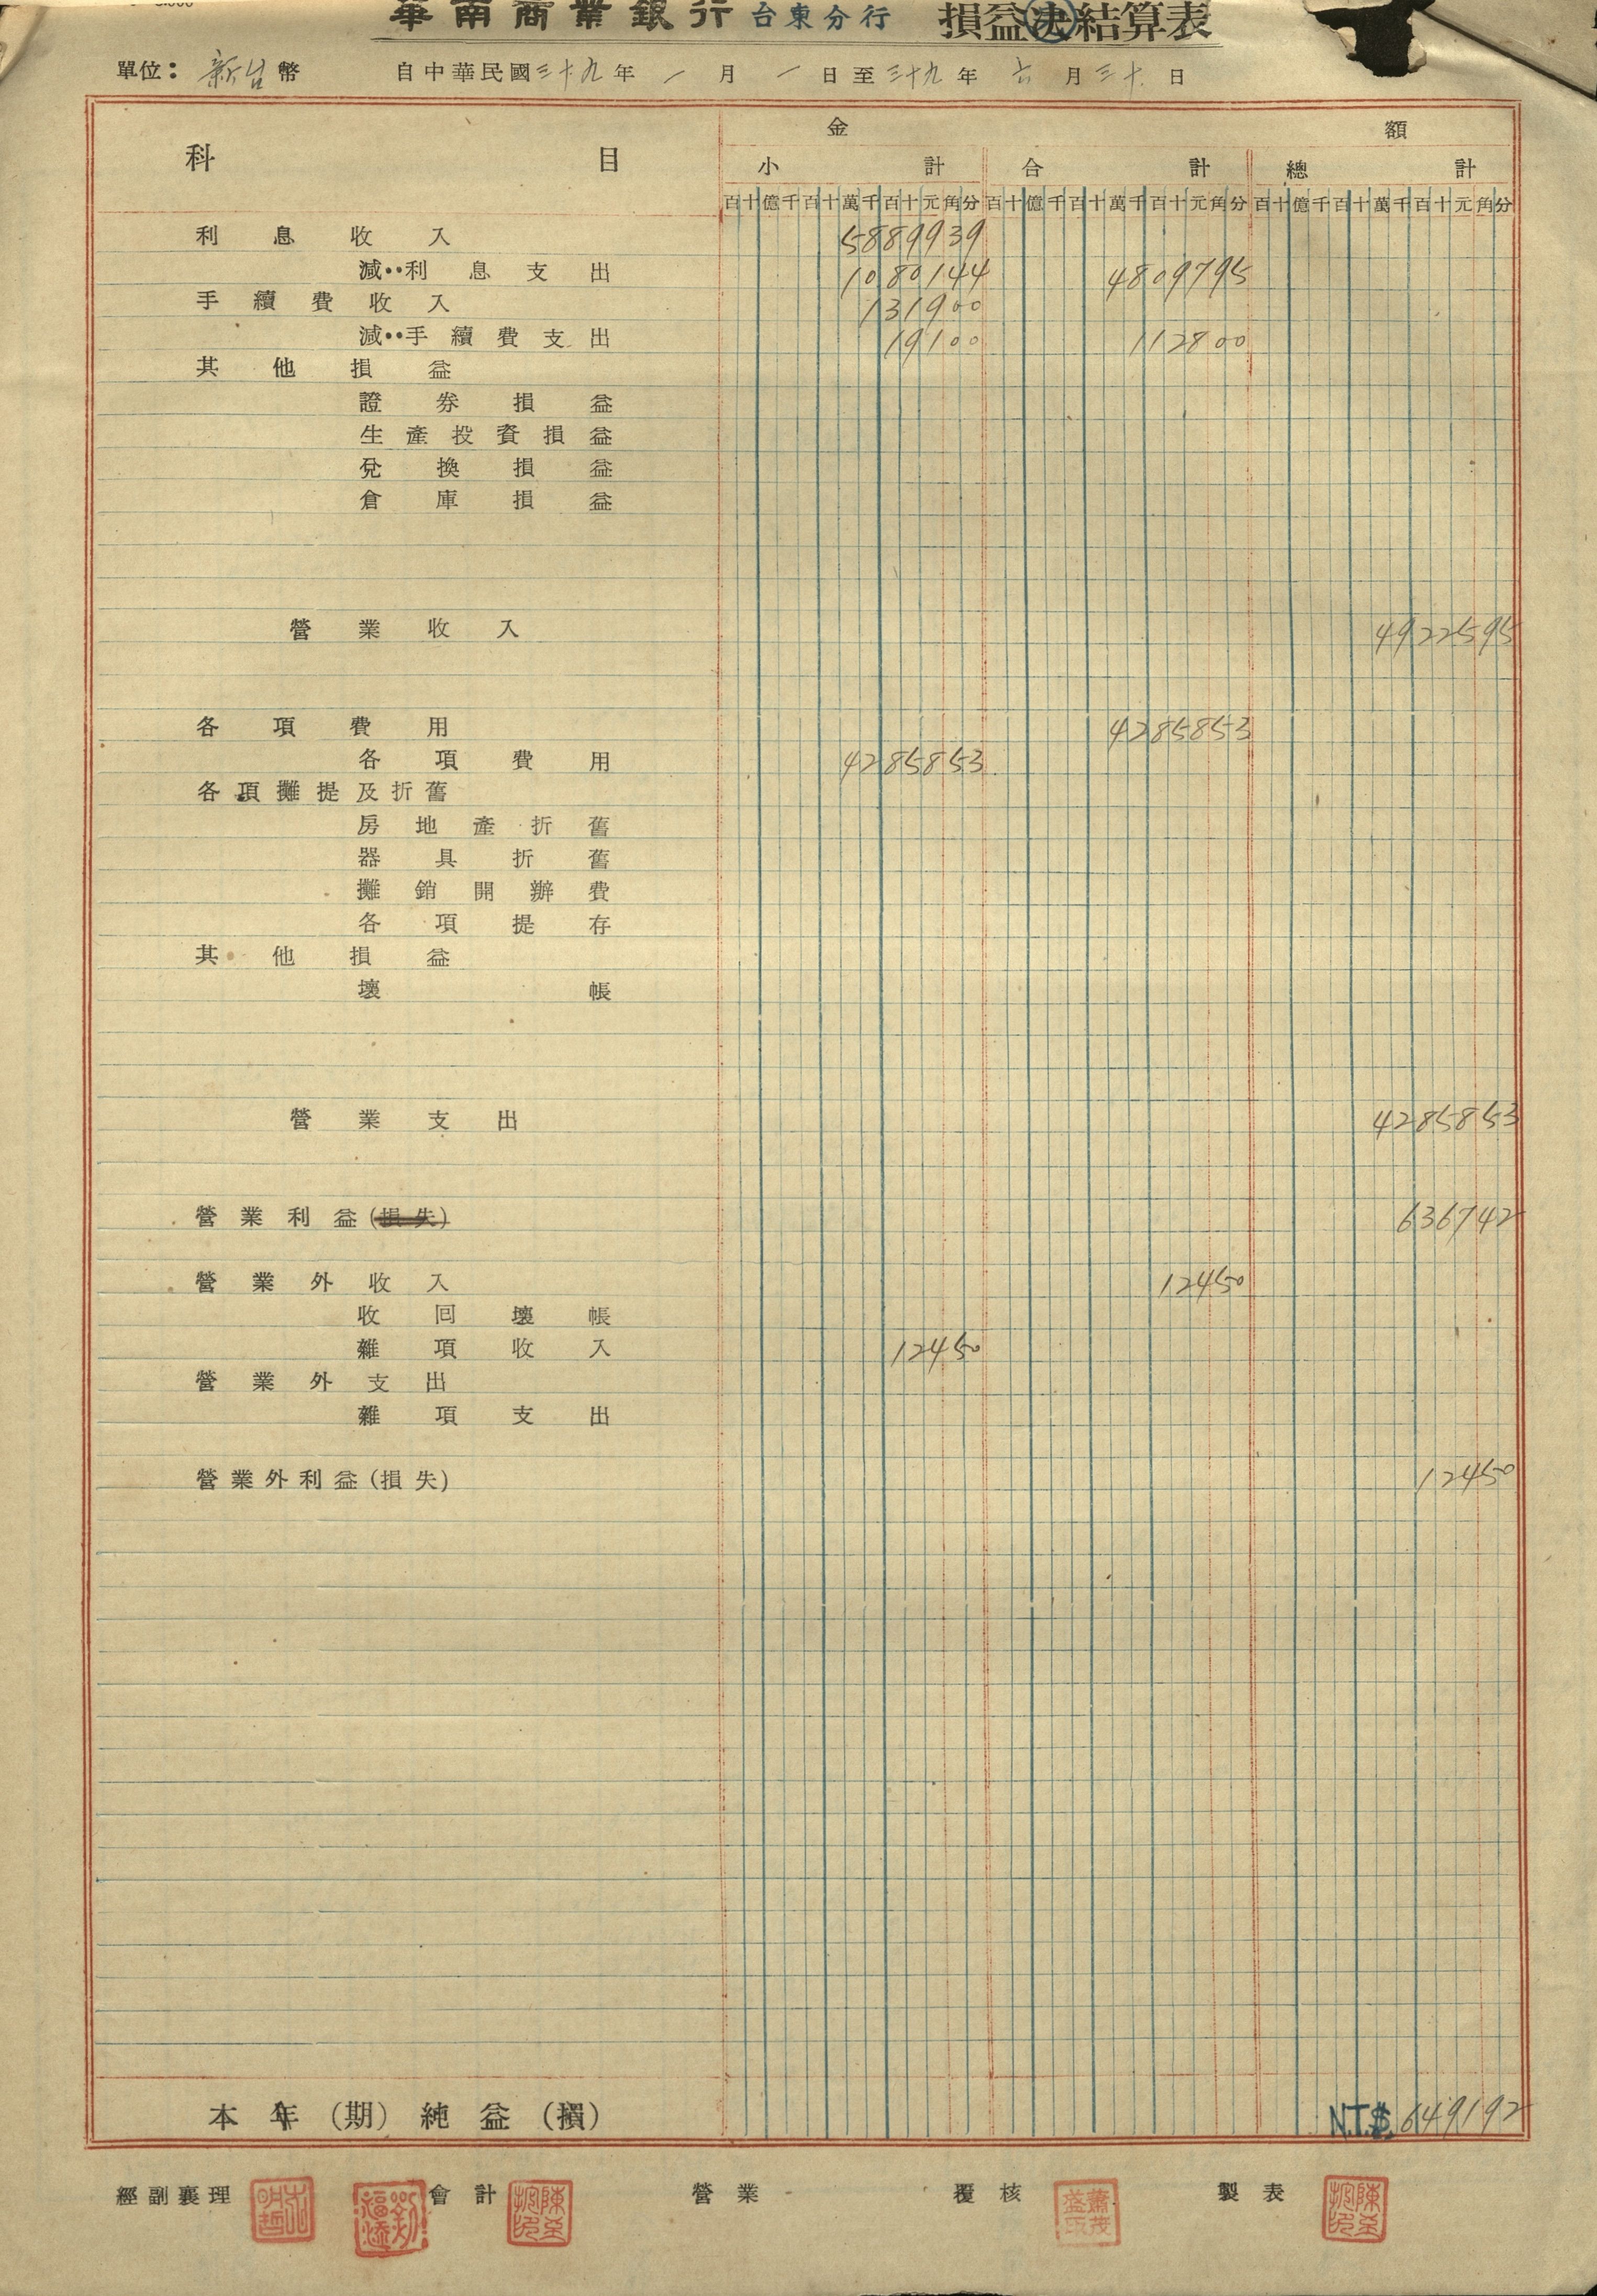 華南商業銀行 台東分行 損益決結算表
單位：新台幣 自中華民國三十九年一月一日至三十九年六月三十日
金額
科目 小計 合計 總計
百十億千百十萬千百十元角分 百十億千百十萬千百十元角分 百十億千百十萬千百十元角分
利息收入 5889939
減：利息支出 1080144 4809795
手續費收入 131900
減：手續費支出 19100 112800
其他損益
證券損益
生產投資損益
兌換損益
倉庫損益
營業收入 4922595
各項費用 4285853
各項費用 4285853
各項攤提及折舊
房地產折舊
器具折舊
攤銷開辦費
各項提存
其他損益
壞帳
營業支出 4285853
營業利益(損失) 636742
營業外收入 12450
收回壞帳
雜項收入 12450
營業外支出
雜項支出
營業外利益(損失) 12450
本年(期)純益(損) N.T.$ 649192
經副襄理 會計 營業 覆核 製表